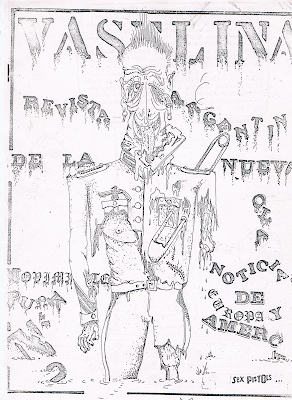 VASELINA
REVISTA ARGENTINA
DE LA NUEVA
OLA
NOTICIAS
DE
EUROPA Y
AMERC
Nº 2
SEX PISTOLS ...